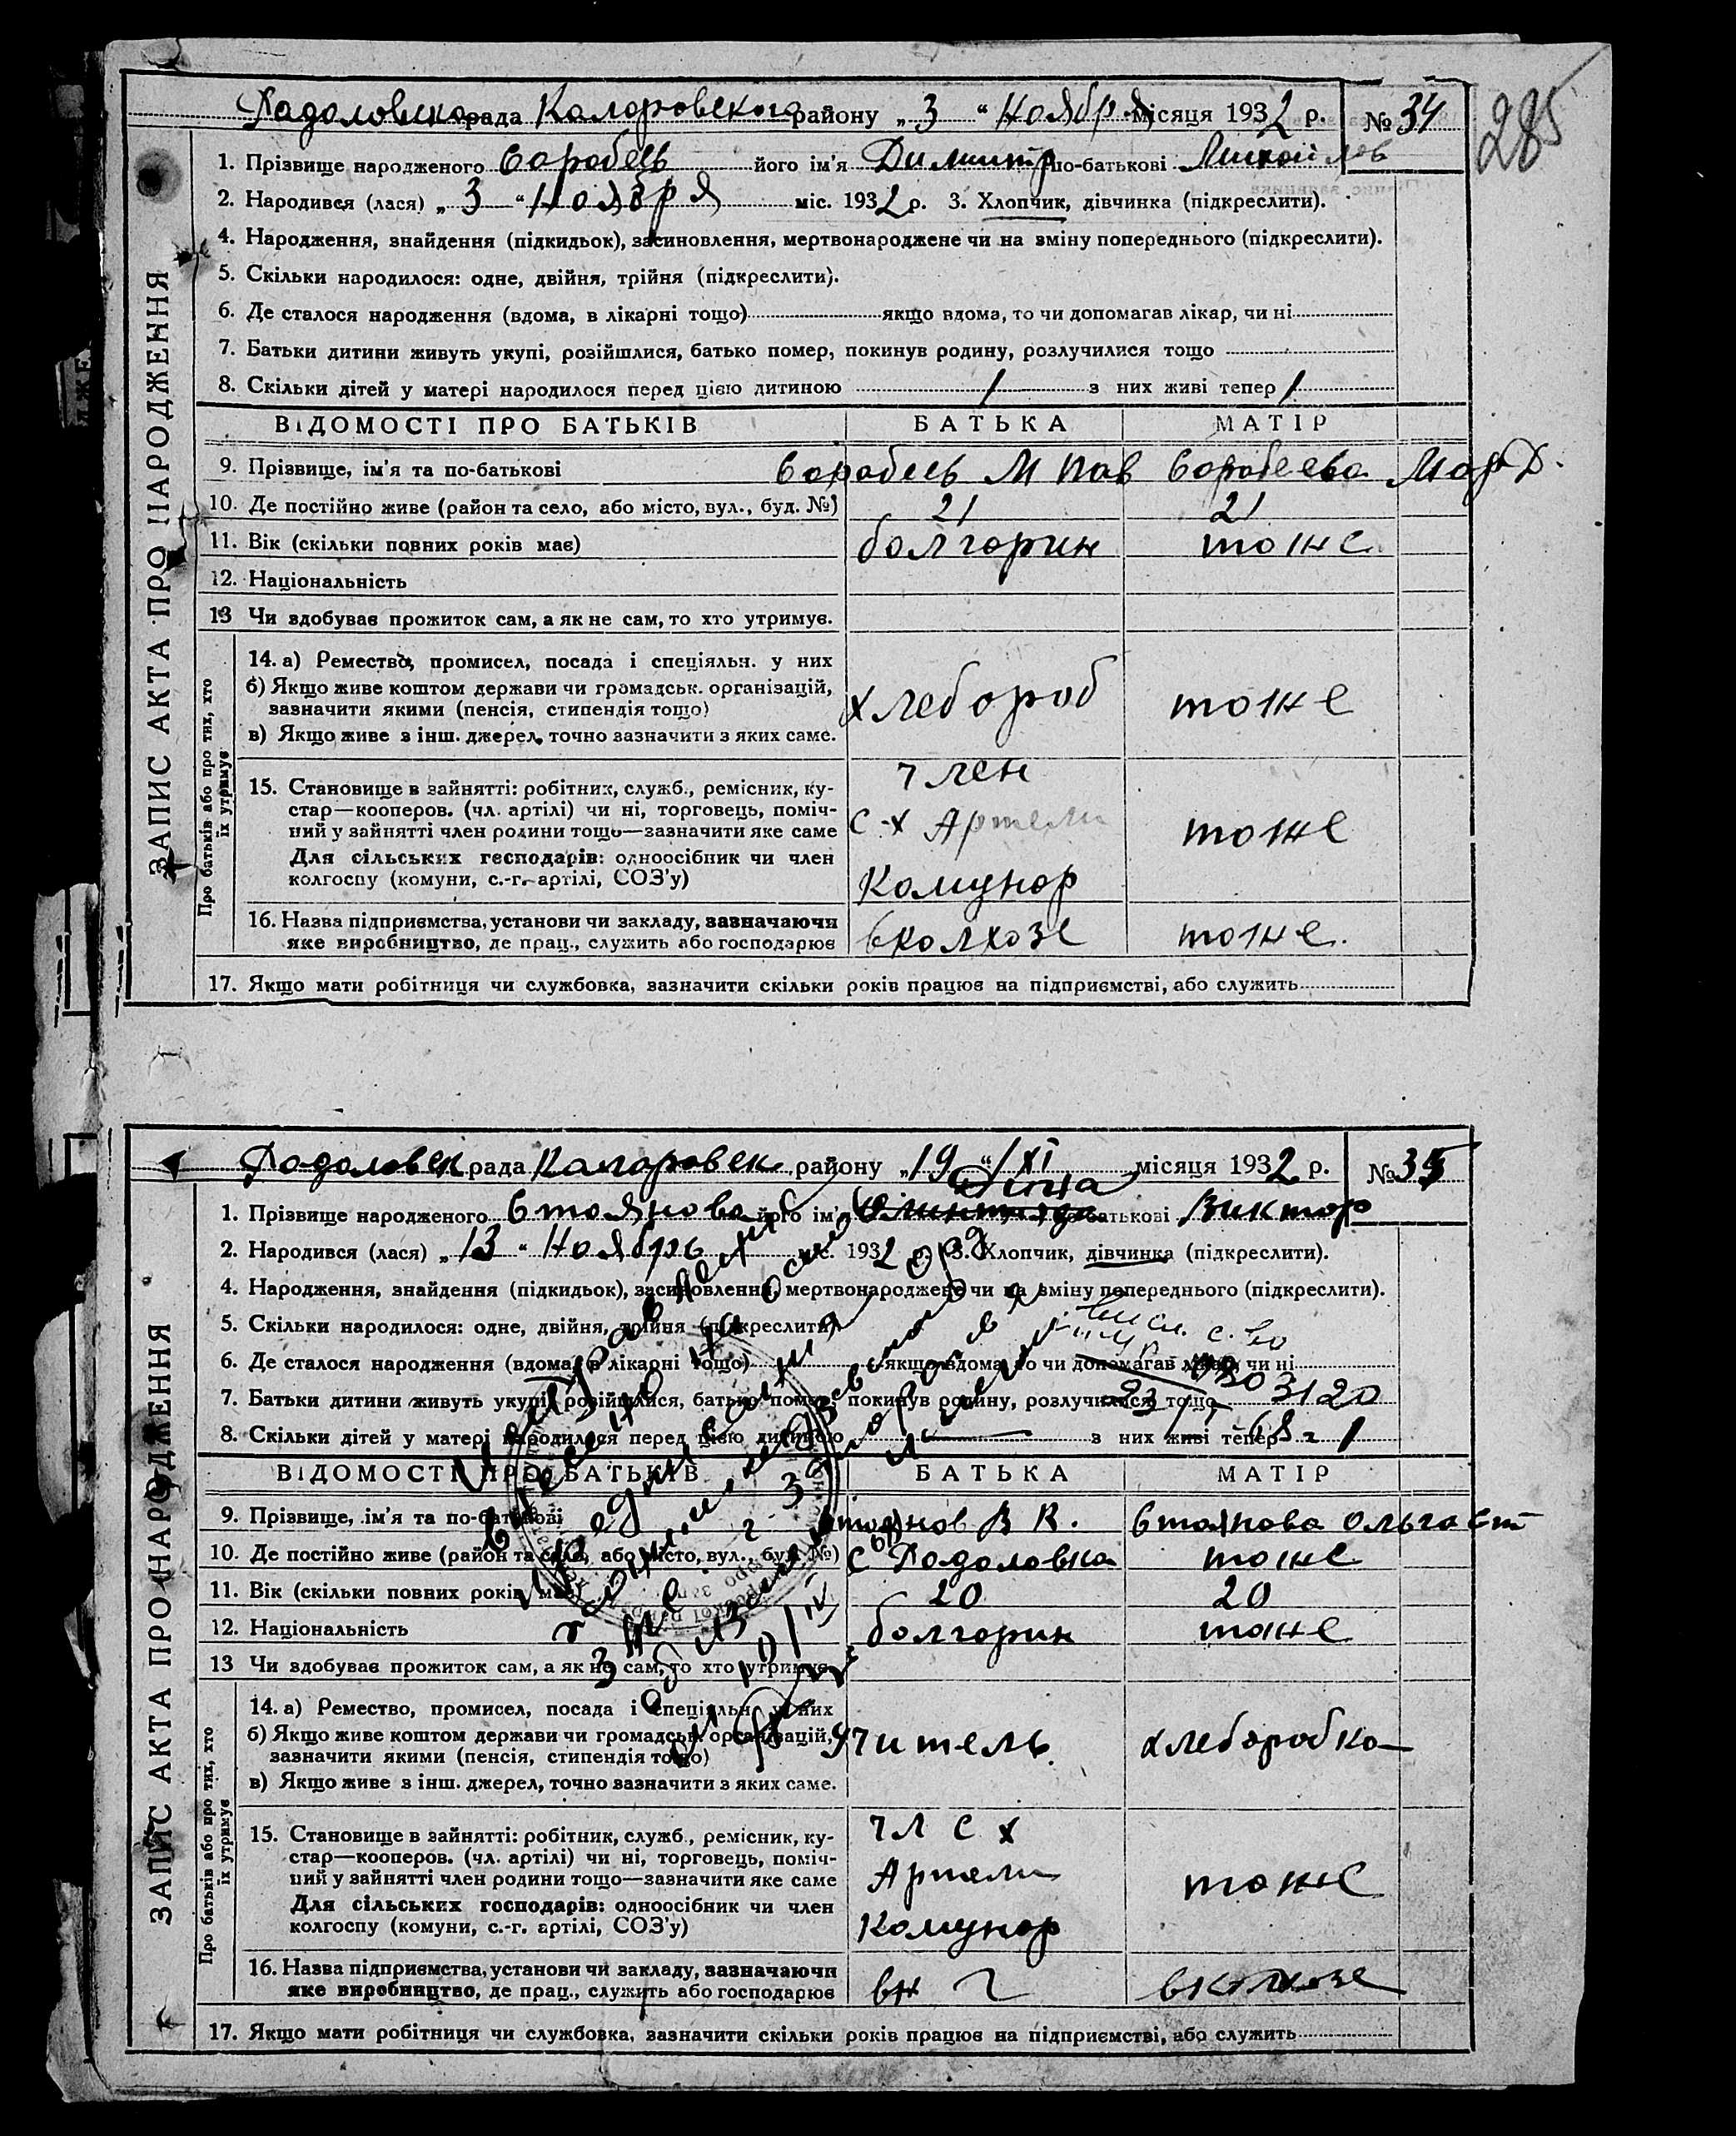 285
Радоловска рада Коларовского району „3“ Ноября місяця 1932 р. № 34
1. Прізвище народженого Воробець його ім'я Димитр по-батькові Михайлов
2. Народився (лася) „3“ Ноября міс. 1932 р. 3. Хлопчик, дівчинка (підкреслити).
4. Народження, знайдення (підкидьок), засиновлення, мертвонароджене чи на зміну попереднього (підкреслити).
5. Скільки народилося: одне, двійня, трійня (підкреслити).
6. Де сталося народження (вдома, в лікарні тощо) якщо вдома, то чи допомагав лікар, чи ні
7. Батьки дитини живуть укупі, розійшлися, батько помер, покинув родину, розлучилися тощо
8. Скільки дітей у матері народилося перед цією дитиною 1 з них живі тепер 1
ВІДОМОСТІ ПРО БАТЬКІВ БАТЬКА МАТІР
9. Прізвище, ім'я та по-батькові М Пав Мар Д.
10. Де постійно живе (район та село, або місто, вул., буд. №) 21 21
11. Вік (скільки повних років має) болгорин тоже
12. Національність
13 Чи здобував прожиток сам, а як не сам, то хто утримує.
14. а) Ремество, промисел, посада і спеціяльн. у них
б) Якщо живе коштом держави чи громадськ. організацій,
зазначити якими (пенсія, стипендія тощо) хлебороб тоже
в) Якщо живе з інш. джерел, точно зазначити з яких саме.
15. Становище в зайнятті: робітник, служб., ремісник, ку- член
стар—кооперов. (чл. артілі) чи ні, торговець, поміч-
ний у зайнятті член родини тощо—зазначити яке саме с-х Артели тоже
Для сільських господарів: одноосібник чи член
колгоспу (комуни, с.-г. артілі, СОЗ'у) Комунор
16. Назва підприємства, установи чи закладу, зазначаючи
яке виробництво, де прац., служить або господарює вколхозе тоже.
17. Якщо мати робітниця чи службовка, зазначити скільки років працює на підприємстві, або служить
ЗАПИС АКТА ПРО НАРОДЖЕННЯ
Про батьків або про тих, хто
їх утримує
Радоловск рада Коларовск району „19“ XI місяця 1932 р. № 35
1. Прізвище народженого Стоянова його ім'я по-батькові Виктор
2. Народився (лася) „13“ Ноябрь міс. 1932 р. 3. Хлопчик, дівчинка (підкреслити).
4. Народження, знайдення (підкидьок), засиновлення, мертвонароджене чи на зміну попереднього (підкреслити).
5. Скільки народилося: одне, двійня, трійня (підкреслити).
6. Де сталося народження (вдома, в лікарні тощо) якщо вдома, то чи допомагав лікар, чи ні
7. Батьки дитини живуть укупі, розійшлися, батько помер, покинув родину, розлучилися тощо
8. Скільки дітей у матері народилося перед цією дитиною — з них живі тепер 1
ВІДОМОСТІ ПРО БАТЬКІВ БАТЬКА МАТІР
9. Прізвище, ім'я та по-батькові Стоянов В К. Стоянова Ольга Ст
10. Де постійно живе (район та село, або місто, вул., буд. №) с Радоловка тоже
11. Вік (скільки повних років має) 20 20
12. Національність болгорин тоже
13 Чи здобував прожиток сам, а як не сам, то хто утримує.
14. а) Ремество, промисел, посада і спеціяльн. у них
б) Якщо живе коштом держави чи громадськ. організацій,
зазначити якими (пенсія, стипендія тощо) учитель хлеборобка
в) Якщо живе з інш. джерел, точно зазначити з яких саме.
15. Становище в зайнятті: робітник, служб., ремісник, ку- чл с х
стар—кооперов. (чл. артілі) чи ні, торговець, поміч-
ний у зайнятті член родини тощо—зазначити яке саме Артели тоже
Для сільських господарів: одноосібник чи член
колгоспу (комуни, с.-г. артілі, СОЗ'у) Комунор
16. Назва підприємства, установи чи закладу, зазначаючи
яке виробництво, де прац., служить або господарює вколхозе
17. Якщо мати робітниця чи службовка, зазначити скільки років працює на підприємстві, або служить
ЗАПИС АКТА ПРО НАРОДЖЕННЯ
Про батьків або про тих, хто
їх утримує